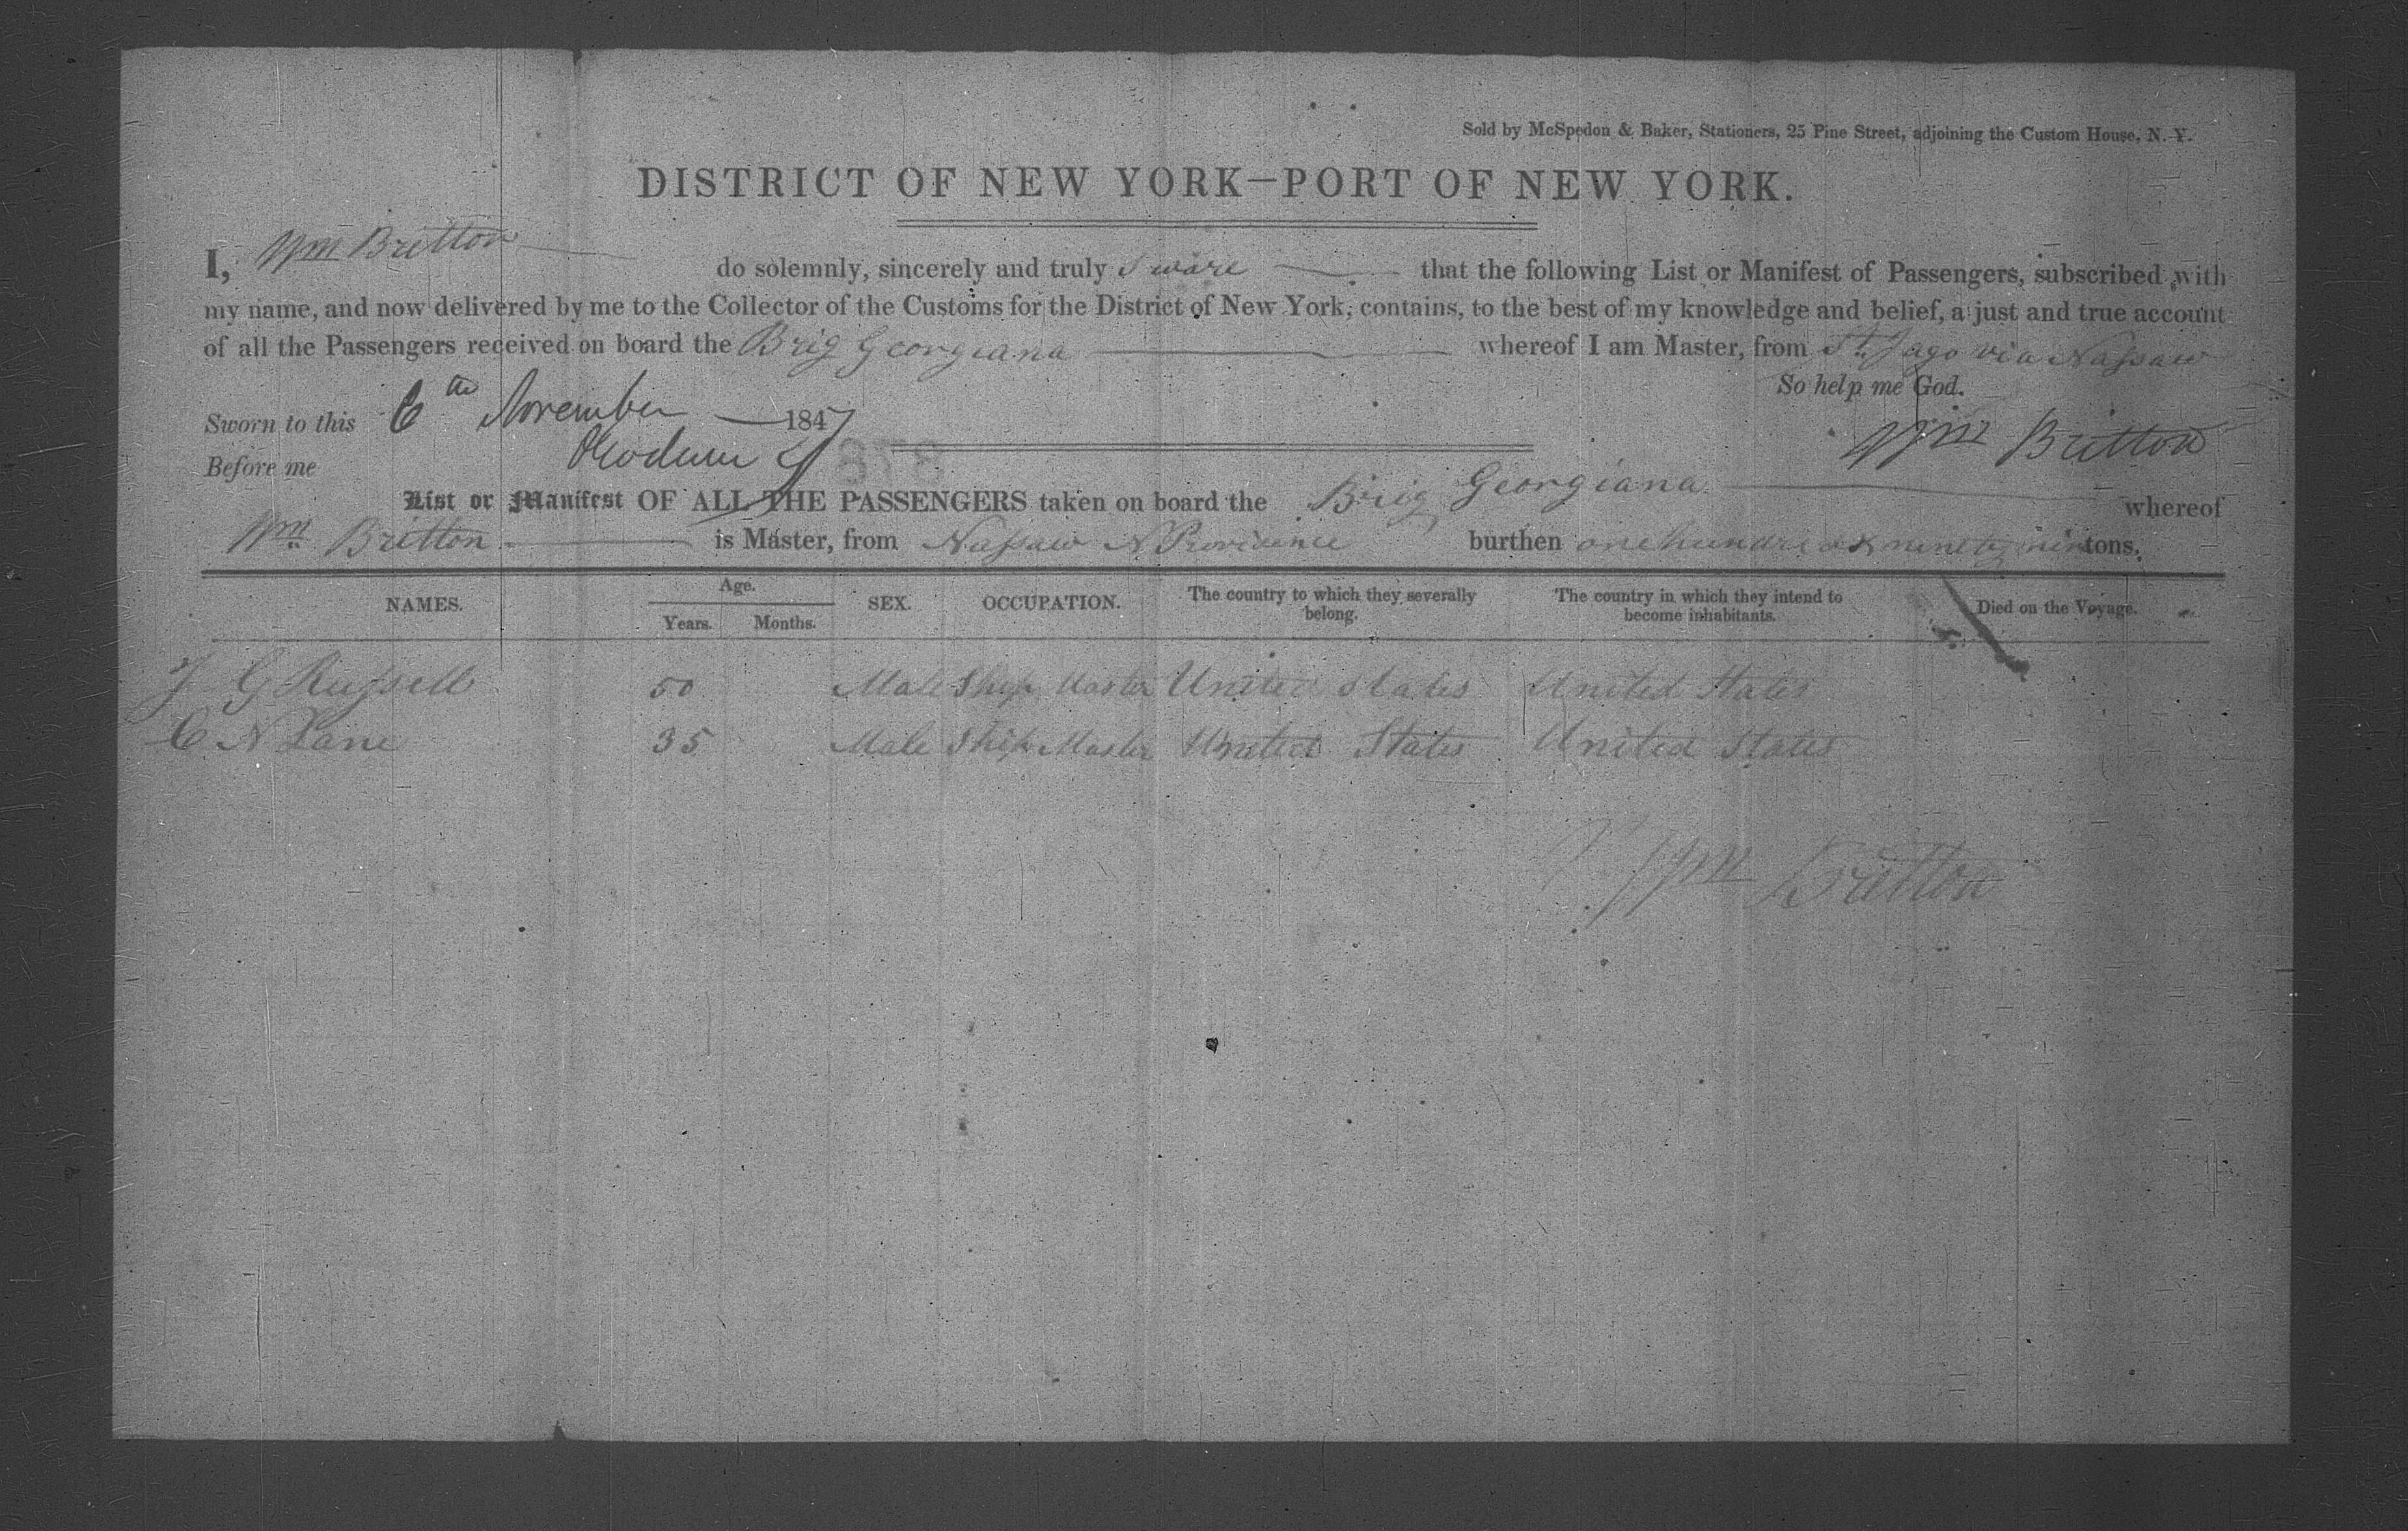 Sold by McSpedon & Baker, Stationers, 25 Pine Street, adjoining the Custom House, N. Y.
DISTRICT OF NEW YORK—PORT OF NEW YORK.
I, Wm Britton do solemnly, sincerely and truly Sware that the following List or Manifest of Passengers, subscribed with
my name, and now delivered by me to the Collector of the Customs for the District of New York, contains, to the best of my knowledge and belief, a just and true account
of all the Passengers received on board the Brig Georgiana whereof I am Master, from St. Jago via Nassaw
So help me God.
Sworn to this 6th November 1847
Wm Britton
Before me
878
List or Manifest OF ALL THE PASSENGERS taken on board the Brig Georgiana whereof
Wm Britton is Master, from Nassaw N Providence burthen one hundred & ninety nine tons.
NAMES. Age. Years. Months. SEX. OCCUPATION. The country to which they severally belong. The country in which they intend to become inhabitants. Died on the Voyage.
G Russell 50 Male Ship Master United States United States
C N Lane 35 Male Ship Master United States United States
Wm Britton